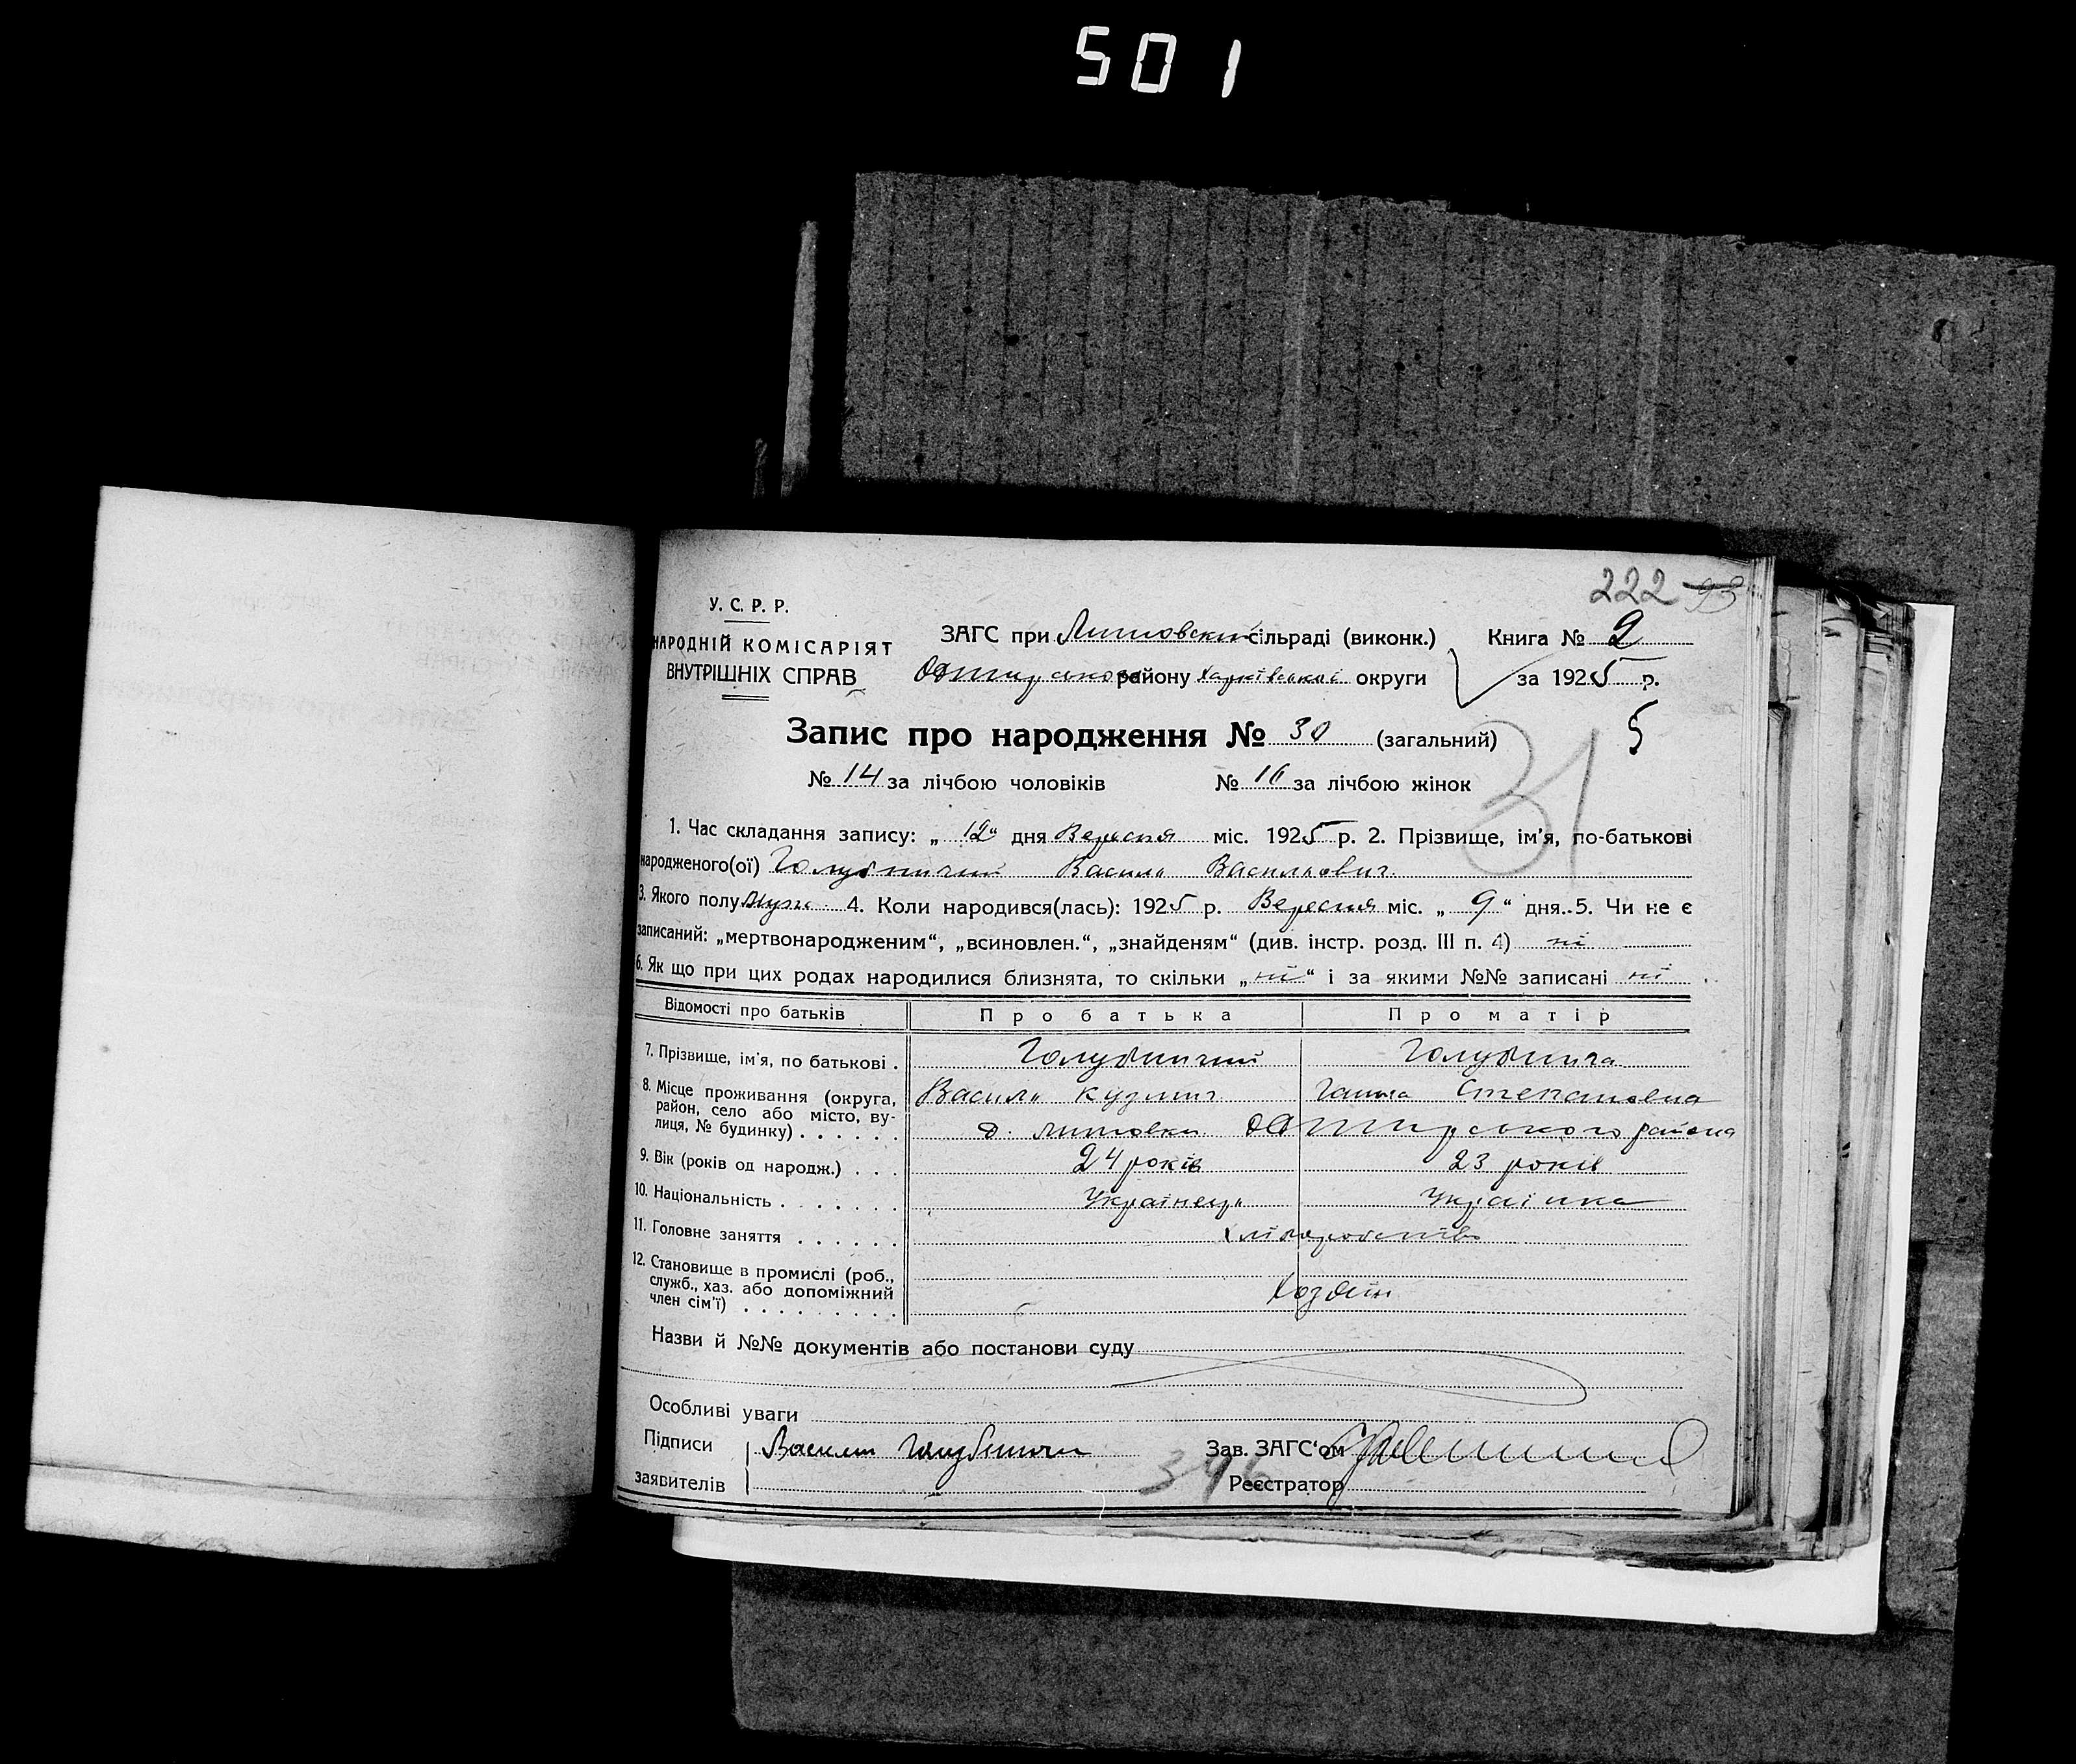 501
222 93
У. С. Р. Р.
НАРОДНІЙ КОМІСАРІЯТ
ВНУТРІШНІХ СПРАВ
ЗАГС при Литовский сільраді (виконк.) Книга № 2
району Харківської округи за 1925 р.
5
Запис про народження № 30 (загальний)
31
№ 14 за лічбою чоловіків № 16 за лічбою жінок
1. Час складання запису: „ 12 “ дня Вересня міс. 1925 р. 2. Прізвище, ім'я, по-батькові
народженого(ої) Голубничий Василь Васильович
3. Якого полу Муж. 4. Коли народився(лась): 1925 р. Вересня міс. „ 9 “ дня. 5. Чи не є
записаний: „мертвонародженим“, „всиновлен.“, „знайденям“ (див. інстр. розд. III п. 4) ні
6. Як що при цих родах народилися близнята, то скільки „ ні “ і за якими №№ записані ні
Відомості про батьків Про батька Про матір
7. Прізвище, ім'я, по батькові . Голубничий Голубнича
8. Місце проживання (округа, район, село або місто, вулиця, № будинку) . . . . . . Василь Кузмич Ганна Степановна
с. Литовки района
9. Вік (років од народж.) . . . 24 років 23 років
10. Національність . . . . . . . Українець Українка
11. Головне заняття . . . . . . Хліборобство
12. Становище в промислі (роб.,
служб., хаз. або допоміжний
член сім'ї) . . . . . . . . . Хозяїн
Назви й №№ документів або постанови суду
Особливі уваги
Підписи Василь Голубничи Зав. ЗАГС'ом
заявителів 396 Реєстратор